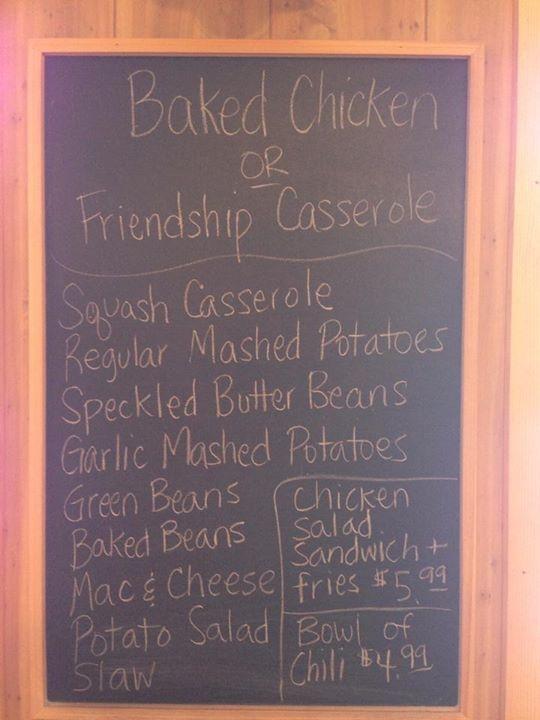 Baked Chicken
OR
Friendship Casserole
Squash Casserole
Regular Mashed Potatoes
Speckled Butter Beans
Garlic Mashed Potatoes
Green Beans
Baked Beans
Mac & Cheese
Potato Salad
Slaw
Chicken
Salad
Sandwich +
fries $5.99
Bowl of
Chili $4.99